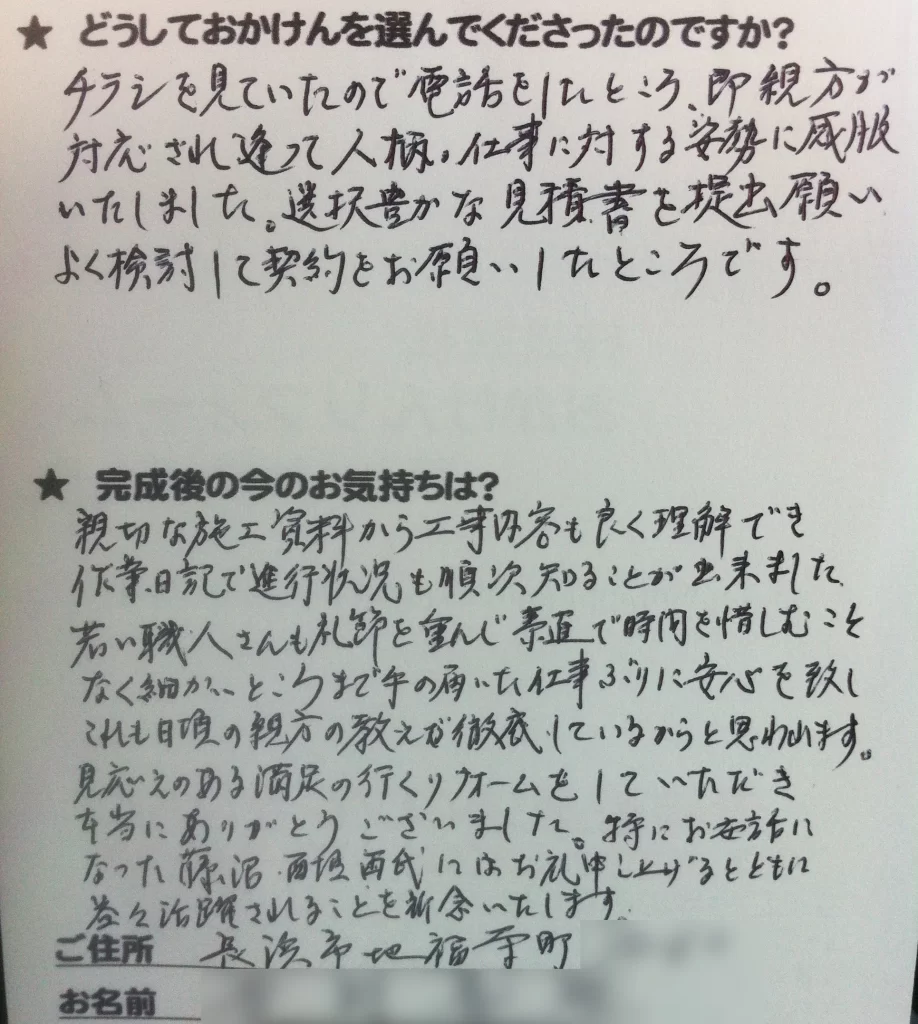 ★ どうしておかけんを選んでくださったのですか?
チラシを見ていたので電話をしたところ、即親方が
対応され逢って人柄。仕事に対する姿勢に感服
いたしました。選択豊かな見積書を提出願い
よく検討して契約をお願いしたところです。
★ 完成後の今のお気持ちは?
親切な施工資料から工事内容も良く理解でき
作業日記で進行状況も順次知ることが出来ました
若い職人さんも礼節を重んじ素直で時間を惜しむこそ
なく細かいところまで手の届いた仕事ぶりに安心を致し
これも日頃の親方の教えが徹底しているからと思われます。
見応えのある満足の行くリフォームをしていただき
本当にありがとうございました。特にお世話に
なった藤沼 西垣両氏にはお礼申し上げるとともに
益々活躍されることを祈念いたします。
ご住所 長浜市地福寺町
お名前